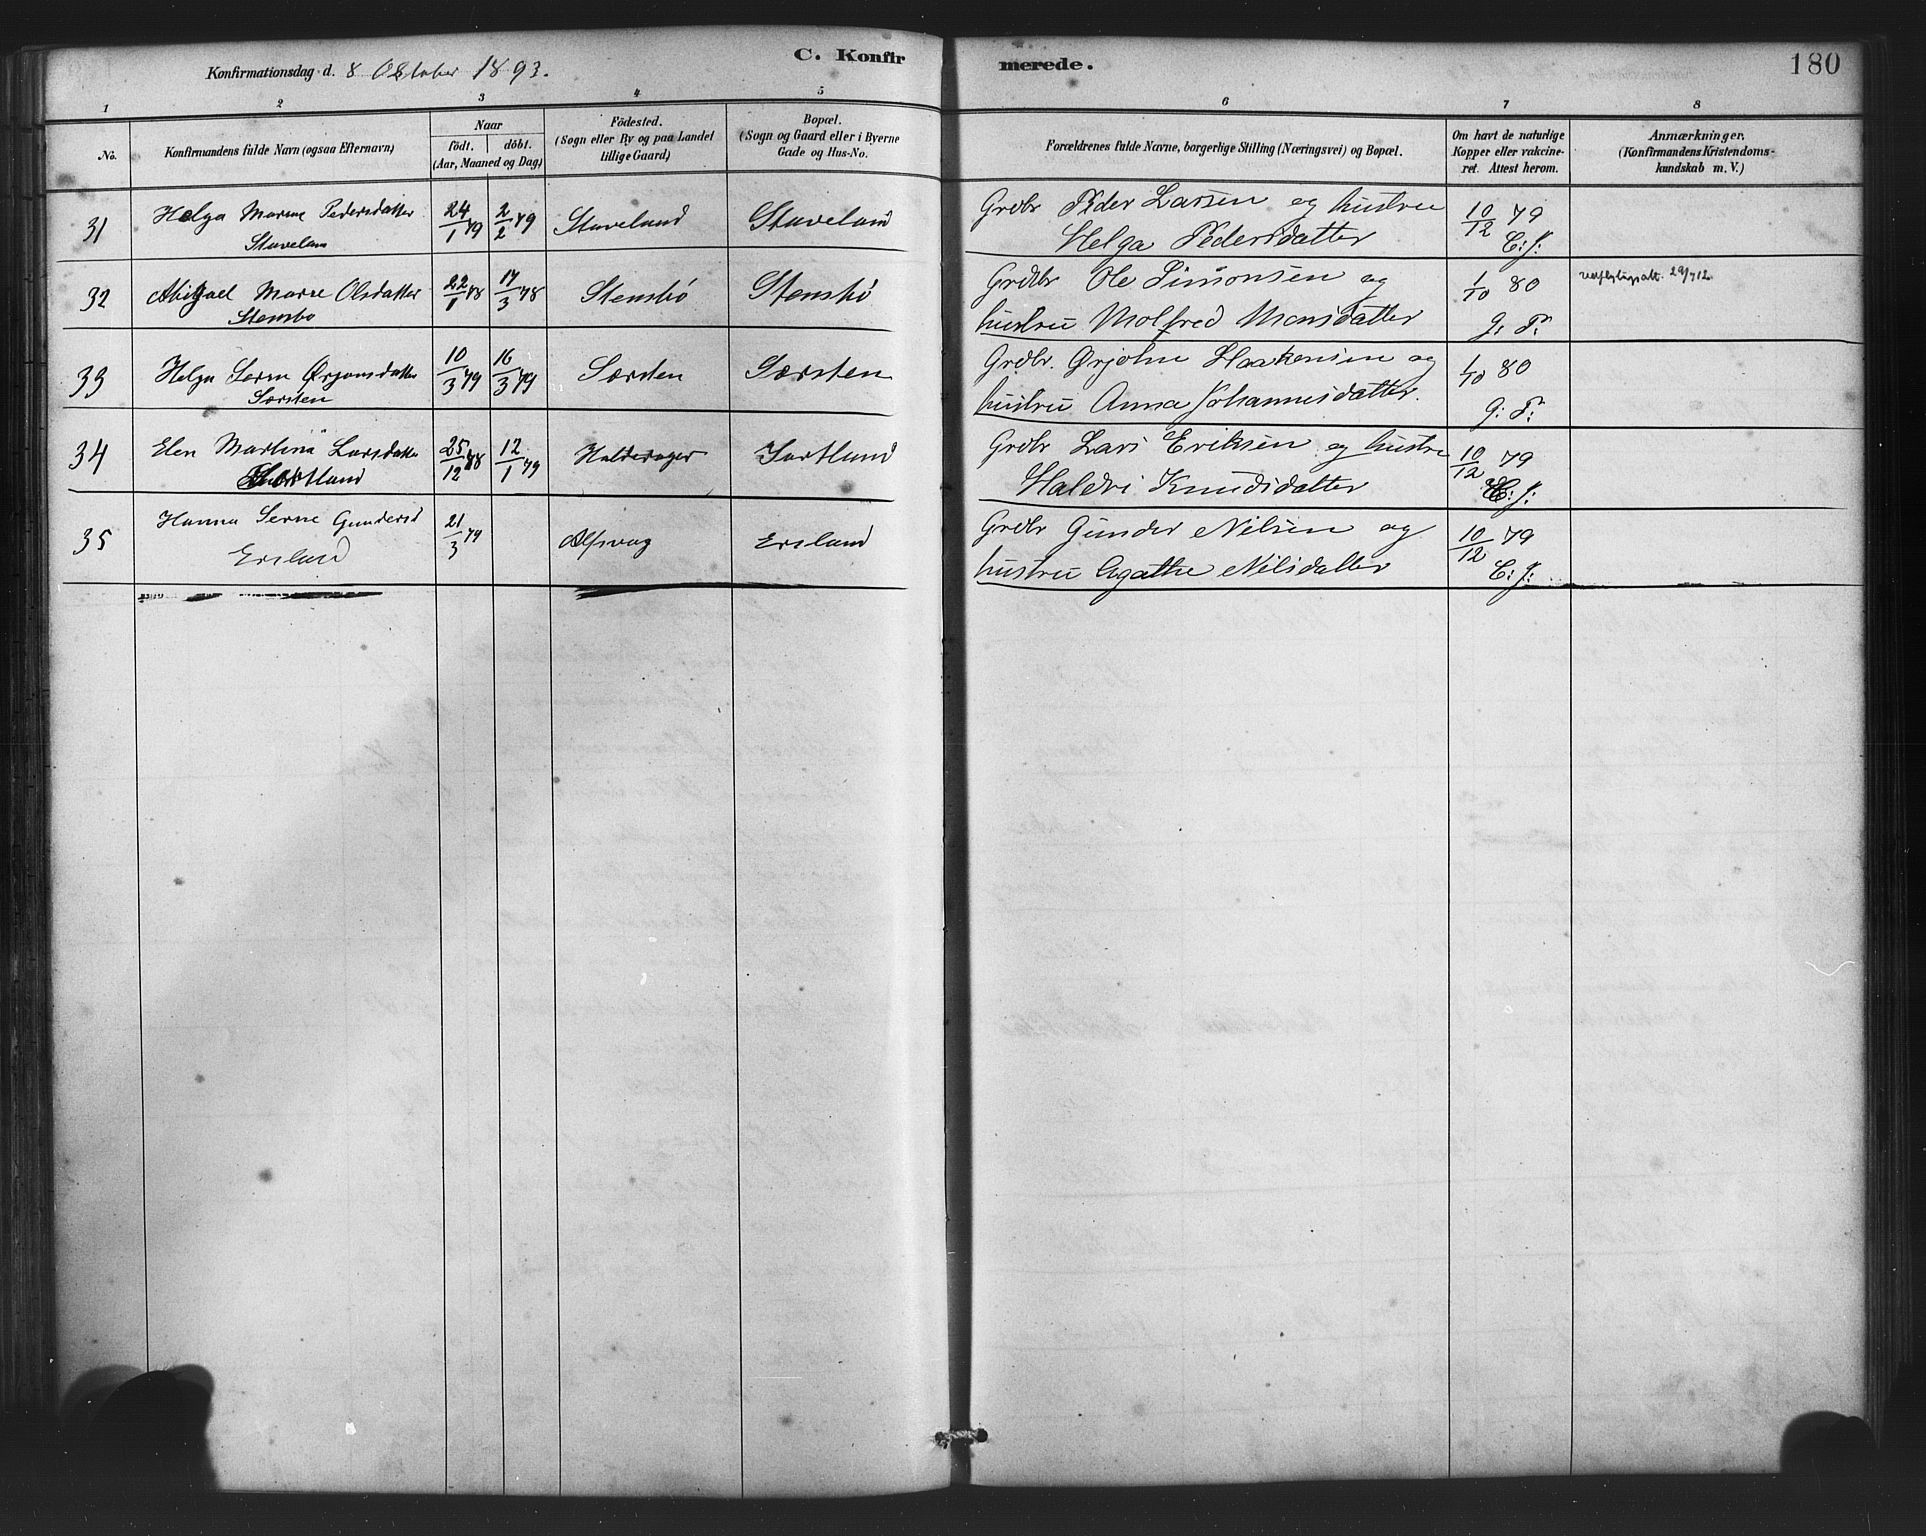 Konfirmationsdag d. 8 Oktober 1893.
C. Konfirmerede.
180
1 2 3 4 5 6 7 8
No.
Konfirmandens fulde Navn (ogsaa Efternavn)
Naar
födt. döbt.
(Aar, Maaned og Dag)
Födested.
(Sogn eller By og paa Landet
tillige Gaard)
Bopæl.
(Sogn og Gaard eller i Byerne
Gade og Hus-No.
Forældrenes fulde Navne, borgerlige Stilling (Næringsvei) og Bopæl.
Om havt de naturlige
Kopper eller vakcine-
ret. Attest herom.
Anmærkninger.
(Konfirmandens Kristendoms-
kundskab m. V.)
31 Helga Marine Pedersdatter 24/1 79 2/2 79 Staveland Staveland Grdbr Peder Larsen og hustru 10/12 79
Stavelan Helga Pedersdatter C: J:
32 Abigael Marie Olsdatter 22/1 78 17/3 78 Stensbö Stensbö Grdbr Ole Simonsen og 1/10 80
Stensbo hustru Molfred Monsdatter G: T:
33 Helga Serine Ørjansdatter 10/3 79 16/3 79 Særsten Særsten Grdbr. Ørjohn Haakensen og 1/10 80
Særsten hustru Anna Johannesdatter. G: T:
34 Elen Martina Larsdatter 25/12 78 12/1 79 Halderager Hartland Grdbr Lars Eriksen og hustru 10/12 79
Hartland Haldri Knudsdatter C: J:
35 Hanna Serine Gundersd 21/3 79 Alfsvag Ersland Grdbr Gunder Nilsen og 10/12 79
Ersland hustru Agathe Nilsdatter C: J: